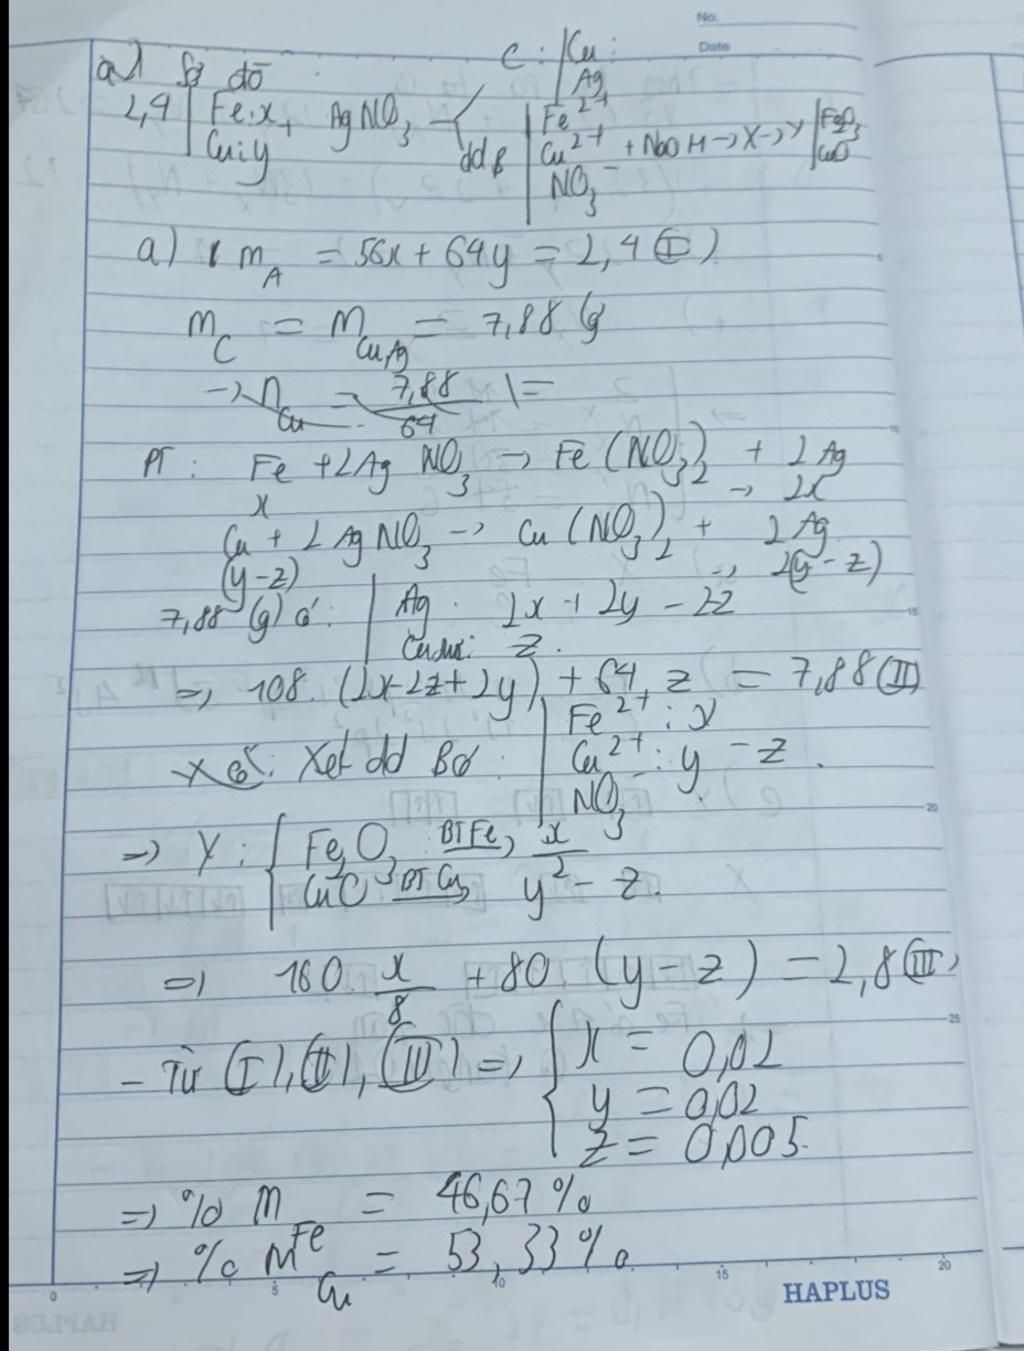 No.
Date
a) Sơ đồ
C: | Cu:
| Ag
2,4 | Fe: x + AgNO3 →
| Cu: y
dd B | Fe2+
| Cu2+ + NaOH → X → Y | Fe2O3
| CuO
| NO3-
a) m A = 56x + 64y = 2,4 (I)
m C = m Cu,Ag = 7,88 (g)
→ n Cu = 7,88/64 =
PT: Fe + 2AgNO3 → Fe(NO3)2 + 2Ag
x → 2x
Cu + 2AgNO3 → Cu(NO3)2 + 2Ag
(y-z) → 2(y-z)
7,88 (g) có: | Ag: 2x + 2y - 2z
| Cu dư: z.
=> 108. (2x-2z+2y) + 64. z = 7,88 (II)
Xét dd B có: | Fe2+: x
| Cu2+: y - z.
| NO3-
=> Y: { Fe2O3 BTFe> x/2
CuO BTCu> y - z.
=> 160. x/8 + 80 (y-z) = 2,8 (III)
- Từ (I), (II), (III) => { x = 0,02
y = 0,02
z = 0,005.
=> % m Fe = 46,67%
=> % m Cu = 53,33%.
0 5 10 15 20
HAPLUS